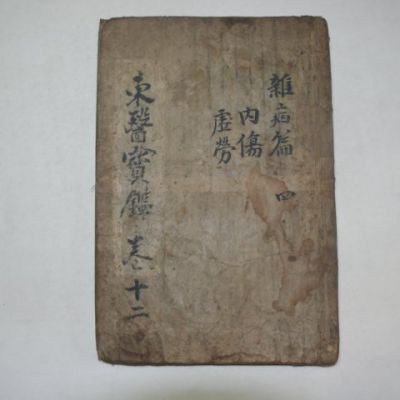 雜病篇 四
內傷
虛勞
東醫寶鑑 卷之十二